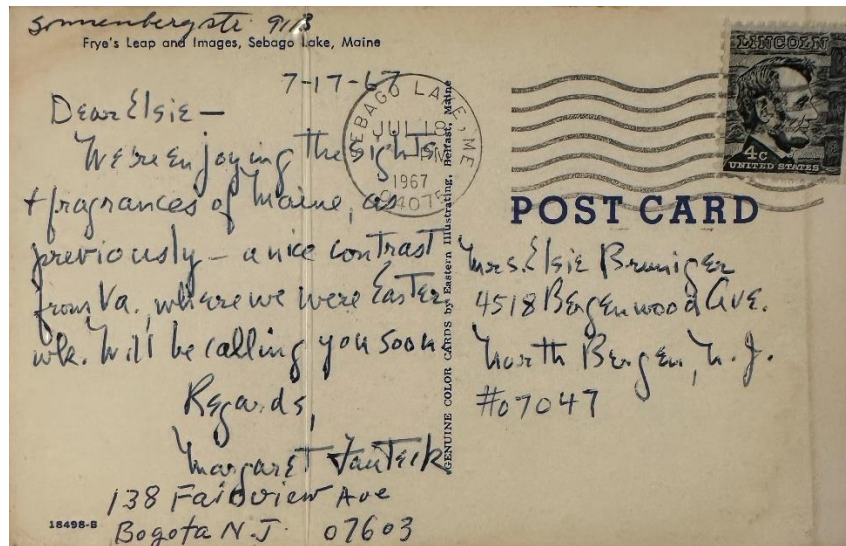 Sonnenbergstr. 9113
Frye's Leap and Images, Sebago Lake, Maine
7-17-67
Dear Elsie —
We're enjoying the sights
+ fragrances of Maine, as
previously — a nice contrast
from Va., where we were Easter
wk. Will be calling you soon
Regards,
Margaret
138 Fairview Ave
Bogota N.J. 07603
18498-B
SEBAGO LAKE, ME
JUL 18
PM
1967
04075
GENUINE COLOR CARDS by Eastern Illustrating, Belfast, Maine
LINCOLN
4c
UNITED STATES
POST CARD
Mrs. Elsie Bruniger
4518 Bergenwood Ave.
North Bergen, N.J.
#07047